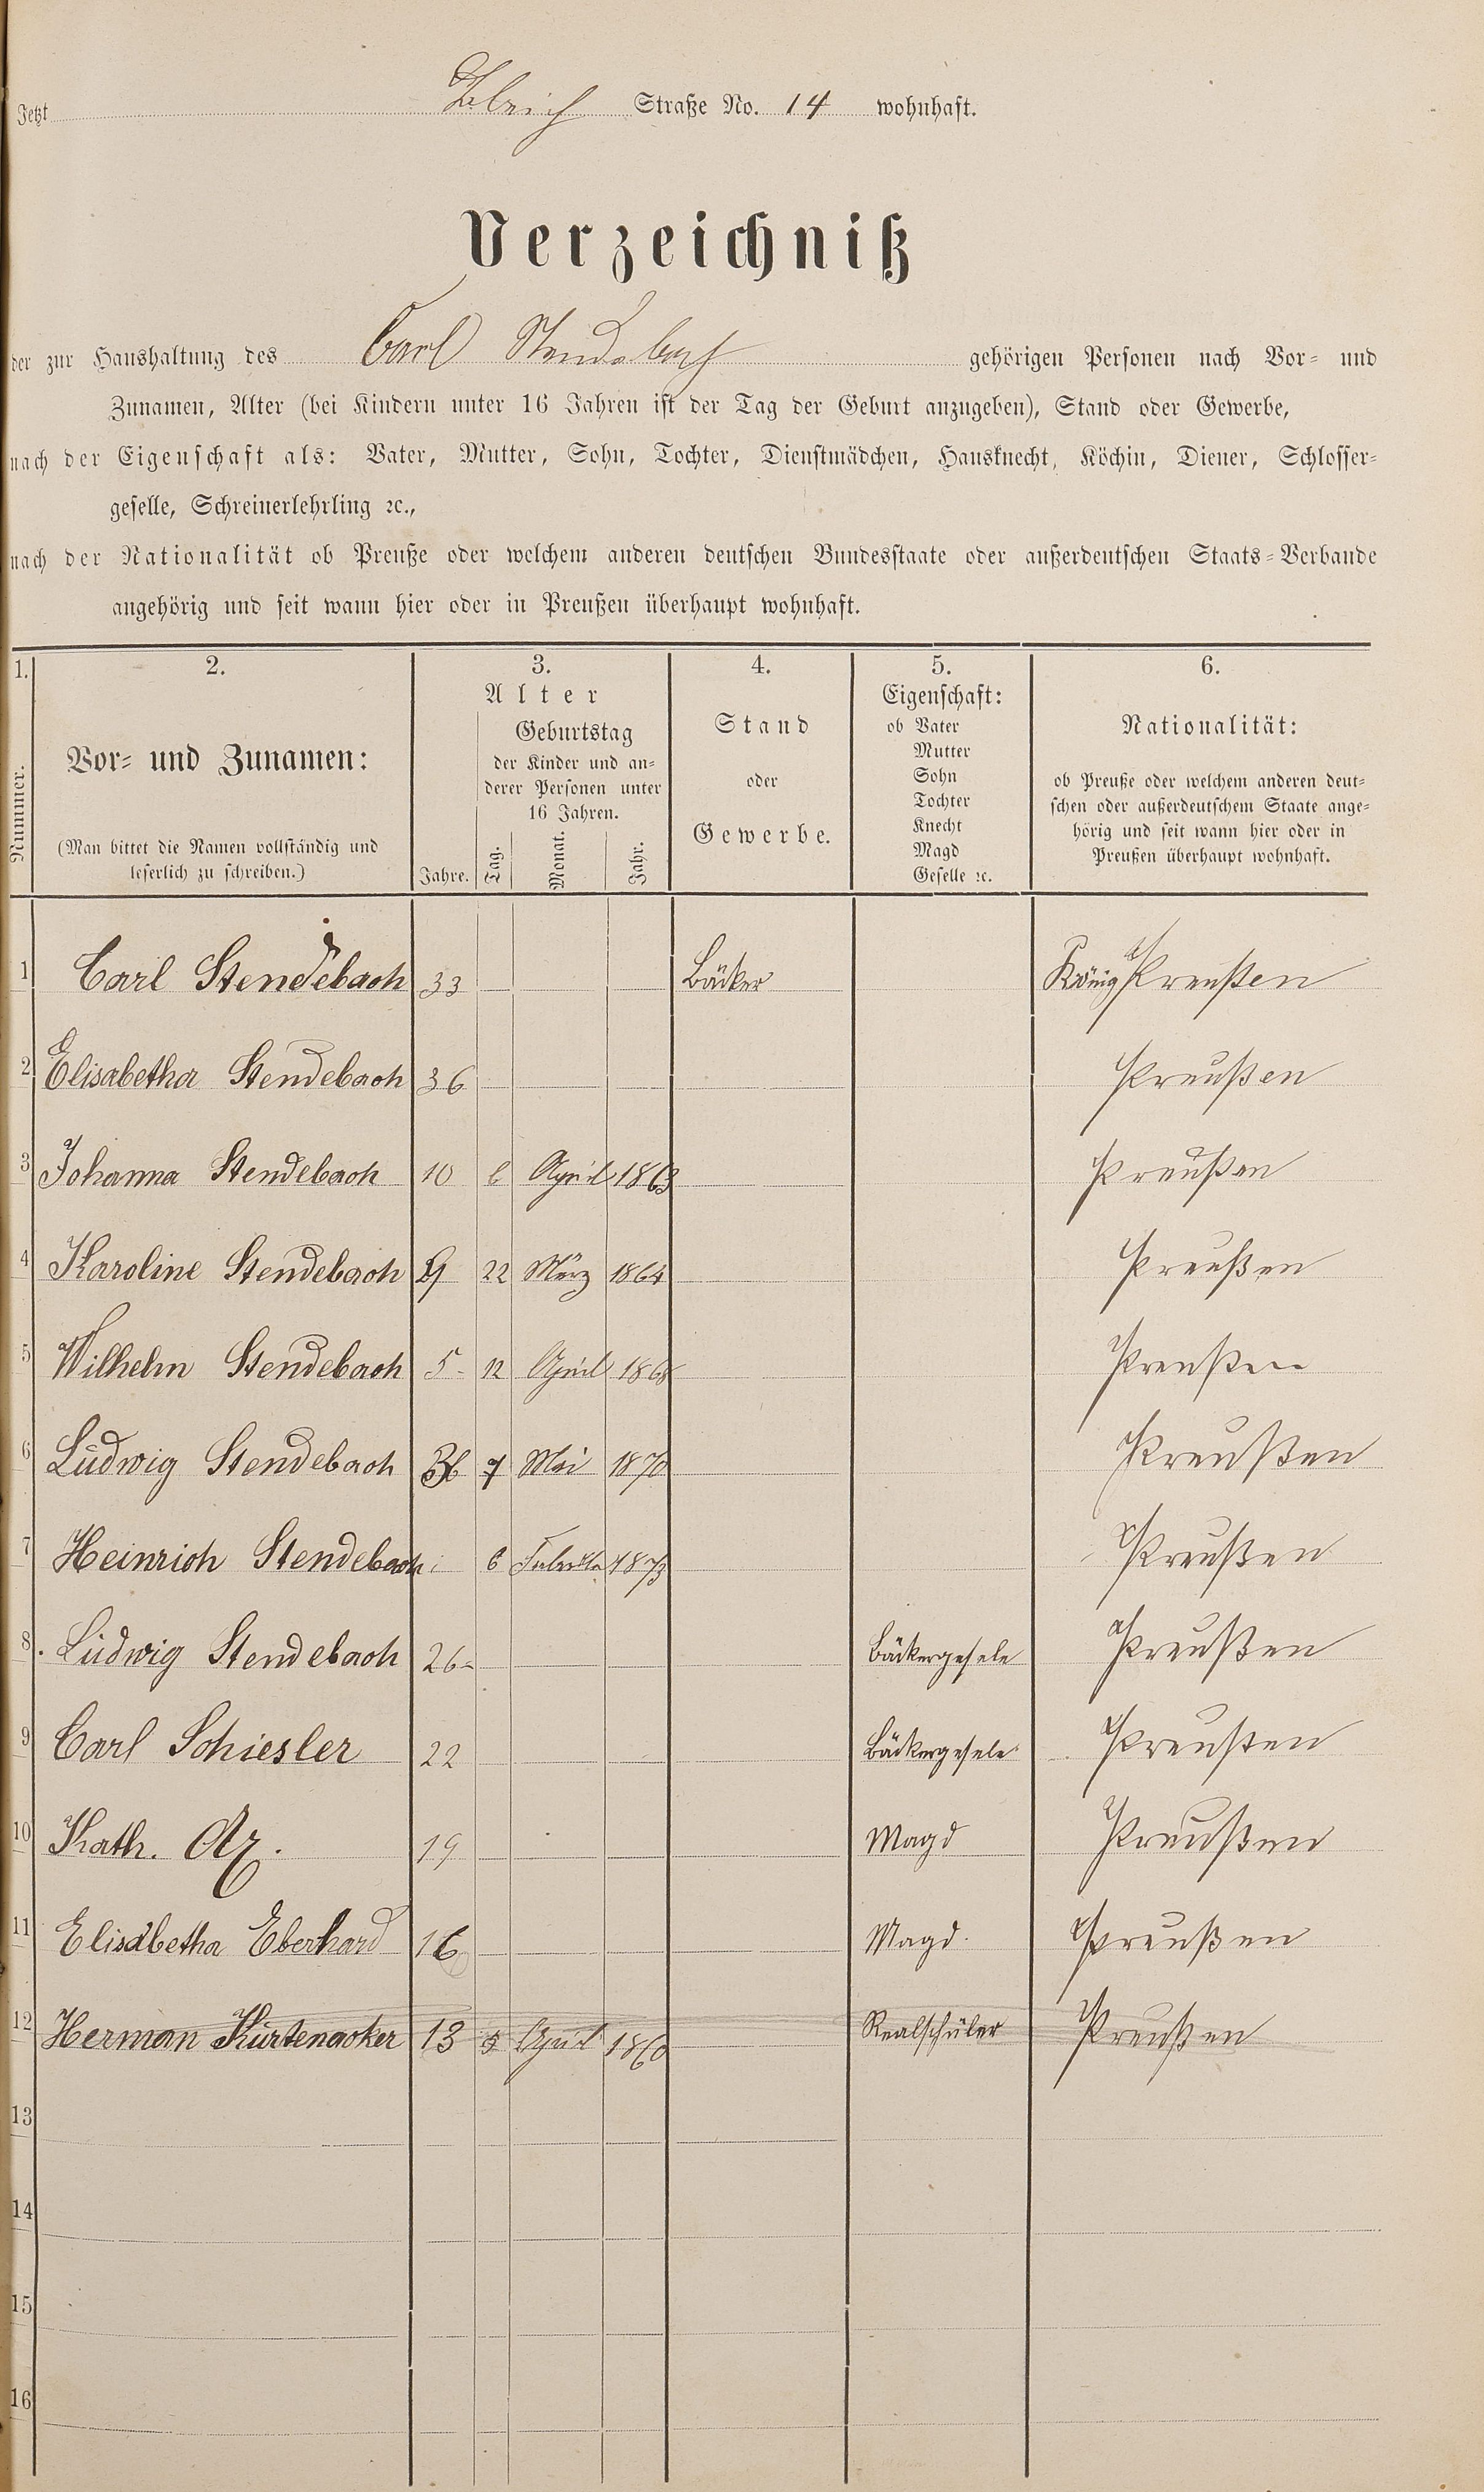 Jetzt Straße No. 14 wohnhaft.
Verzeichniß
der zur Haushaltung des Carl Stendebach gehörigen Personen nach Vor- und
Zunamen, Alter (bei Kindern unter 16 Jahren ist der Tag der Geburt anzugeben), Stand oder Gewerbe,
nach der Eigenschaft als: Vater, Mutter, Sohn, Tochter, Dienstmädchen, Hausknecht, Köchin, Diener, Schlosser-
geselle, Schreinerlehrling ꝛc.,
nach der Nationalität ob Preuße oder welchem anderen deutschen Bundesstaate oder außerdeutschen Staats-Verbande
angehörig und seit wann hier oder in Preußen überhaupt wohnhaft.
1. 2. 3. 4. 5. 6.
Nummer.
Vor- und Zunamen:
(Man bittet die Namen vollständig und
leserlich zu schreiben.)
Alter
Geburtstag
der Kinder und an-
derer Personen unter
16 Jahren.
Jahre. Tag. Monat. Jahr.
Stand
oder
Gewerbe.
Eigenschaft:
ob Vater
Mutter
Sohn
Tochter
Knecht
Magd
Geselle ꝛc.
Nationalität:
ob Preuße oder welchem anderen deut-
schen oder außerdeutschem Staate ange-
hörig und seit wann hier oder in
Preußen überhaupt wohnhaft.
1 Carl Stendebach 33 Bäcker König Preußen
2 Elisabetha Stendebach 36 Preußen
3 Johanna Stendebach 10 6 April 1863 Preußen
4 Karoline Stendebach 9 22 März 1864 Preußen
5 Wilhelm Stendebach 5 12 April 1868 Preußen
6 Ludwig Stendebach 7 Mai 1870 Preußen
7 Heinrich Stendebach 6 1873 Preußen
8 Ludwig Stendebach 26 Bäckergesele Preußen
9 Carl Schiesler 22 Bäckergesele Preußen
10 Kath. 19 Magd Preußen
11 Elisabetha Eberhard 16 Magd. Preußen
12 Herman Kürtenacker 13 April 1860 Realschüler Preußen
13
14
15
16